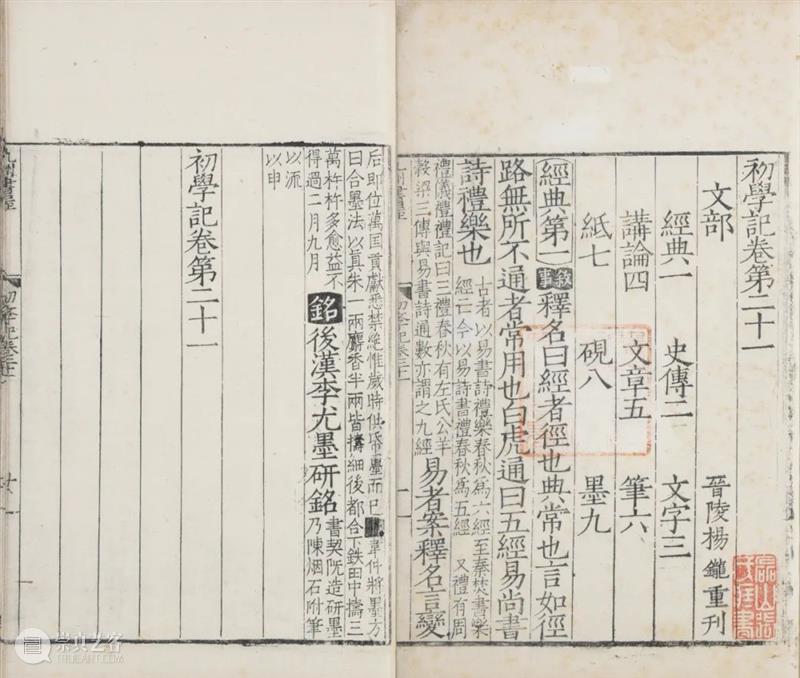 初學記卷第二十一
文部 晉陵楊鑨重刊
經典一 史傳二 文字三
講論四 文章五 筆六
紙七 硯八 墨九
經典第一 敘事 釋名曰經者徑也典常也言如徑
路無所不通者常用也白虎通曰五經易尚書
詩禮樂也 古者以易書詩禮樂春秋為六經至秦焚書樂
經亡今以易詩書禮春秋為五經 又禮有周
禮儀禮禮記曰三禮春秋有左氏公羊
穀梁三傳與易書詩通數亦謂之九經 易者案釋名言變
后即位萬国貢獻悉禁絕惟歲時供帋墨而已 韋仲將墨方
曰合墨法以真朱一兩麝香半兩皆擣細後都合下鉄臼中擣三
萬杵杵多愈益不
得過二月九月
銘 後漢李尤墨研銘 書契既造研墨
乃陳烟石附筆
以流
以申
初學記卷第二十一
崇真艺客
TRUEART.COM